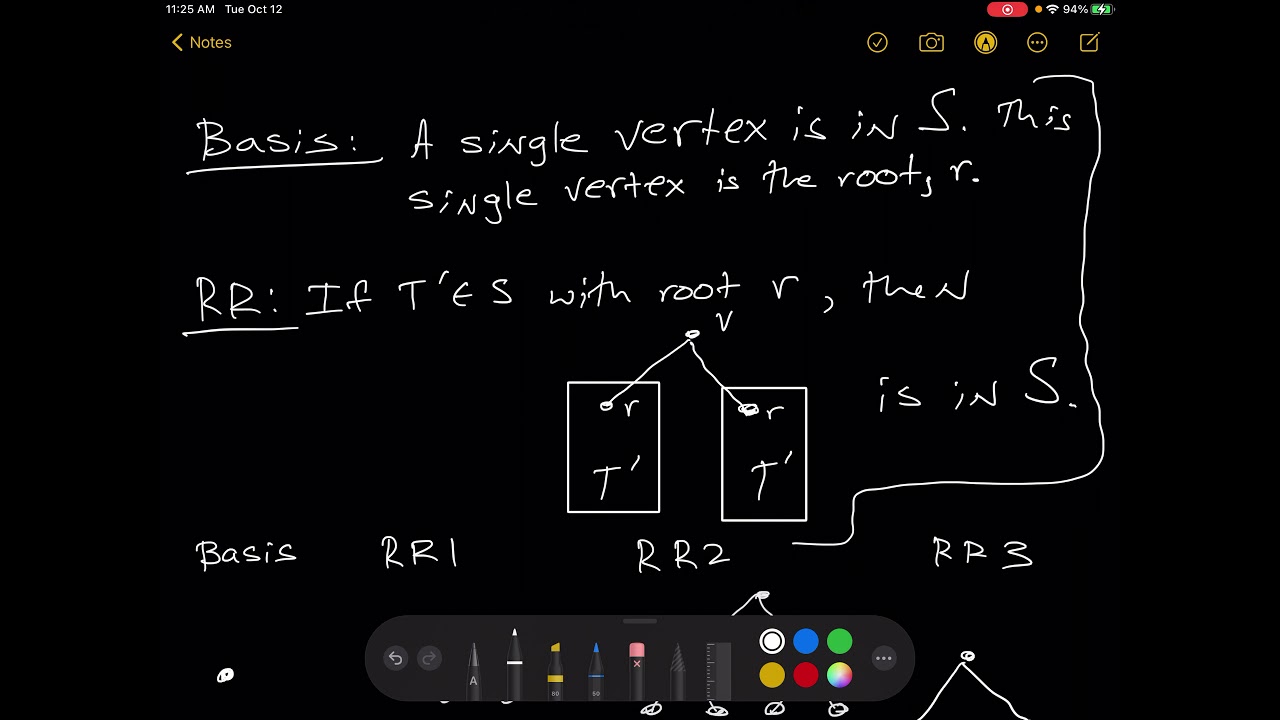 11:25 AM Tue Oct 12 94%
Notes
Basis: A single vertex is in S. This
single vertex is the root, r.
RR: If T'∈S with root r, then
v
r r is in S.
T' T'
Basis RR1 RR2 RR3
A 80 50